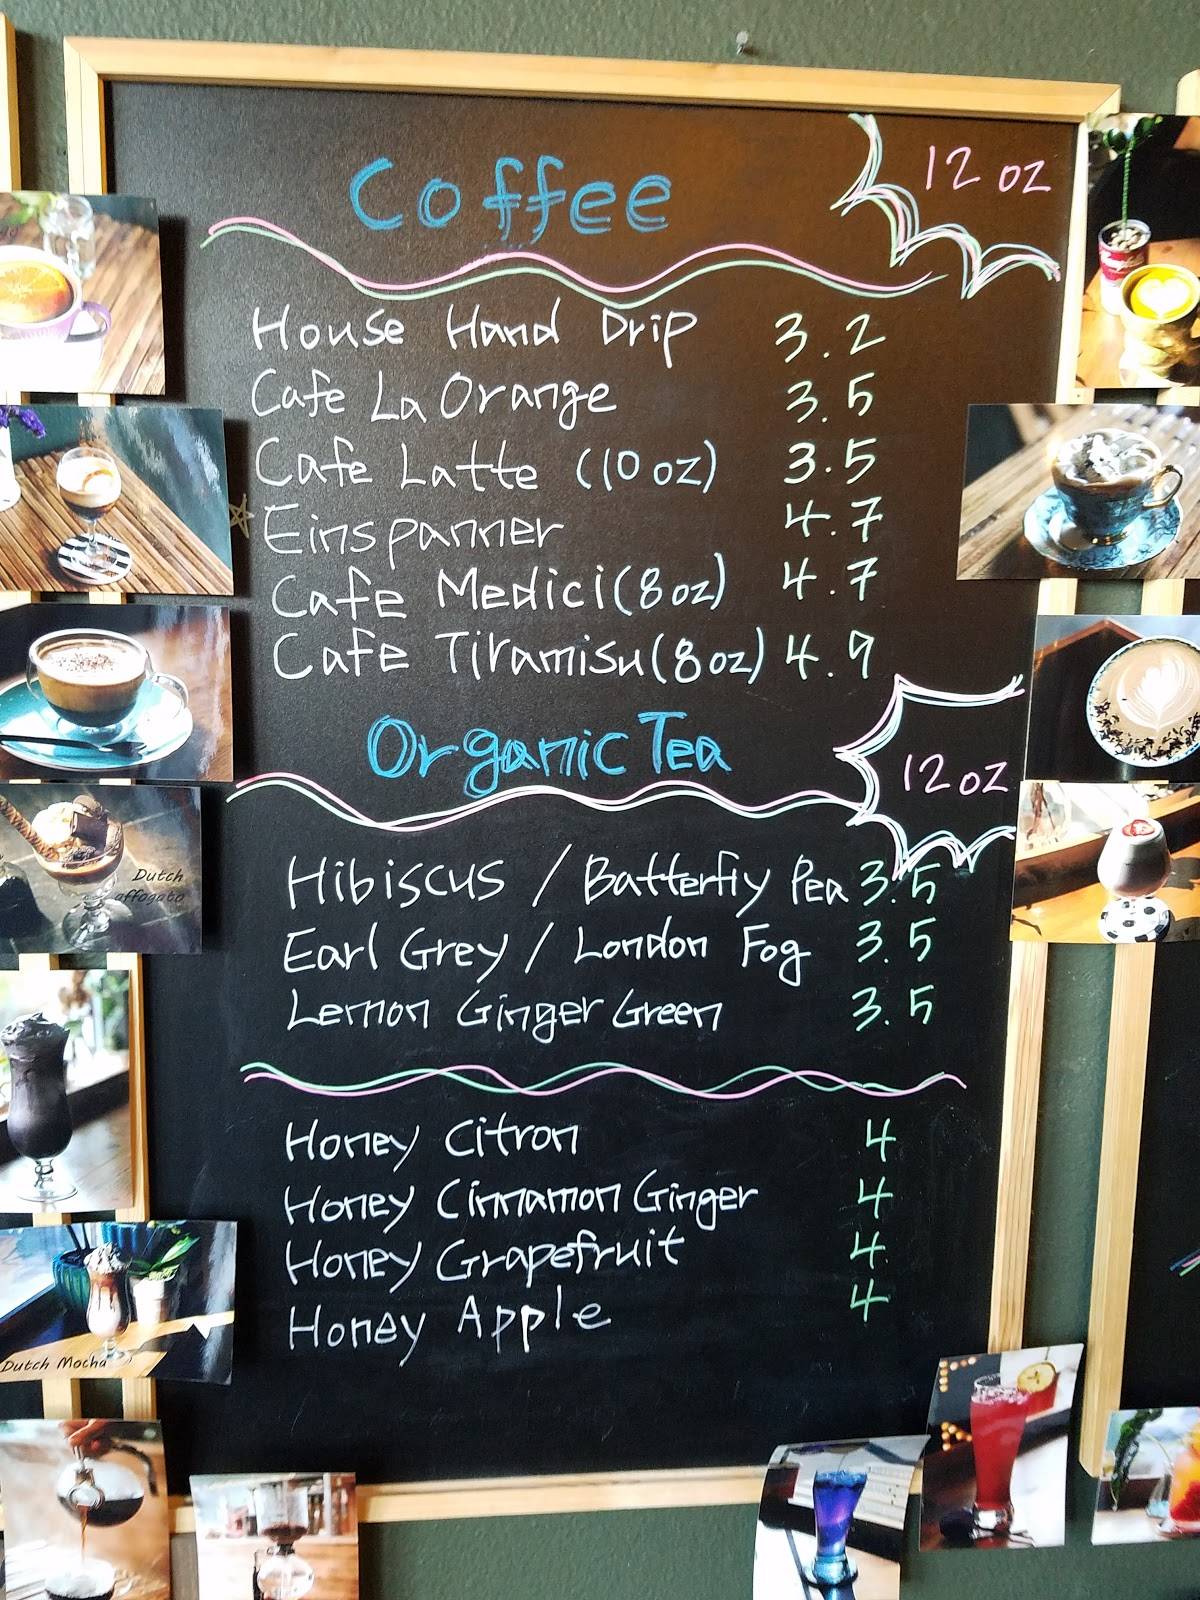 Coffee 12 oz
House Hand Drip 3.2
Cafe La Orange 3.5
Cafe Latte (10 oz) 3.5
Einspanner 4.7
Cafe Medici (8 oz) 4.7
Cafe Tiramisu (8 oz) 4.9
Organic Tea 12 oz
Hibiscus / Batterfly Pea 3.5
Earl Grey / London Fog 3.5
Lemon Ginger Green 3.5
Honey Citron 4
Honey Cinnamon Ginger 4
Honey Grapefruit 4
Honey Apple 4
Dutch
affogato
Dutch Mocha